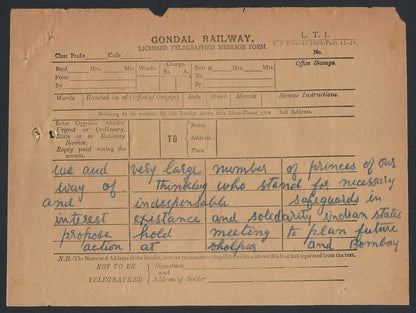 GONDAL RAILWAY.
L. T. 1.
LICENSED TELEGRAPHED MESSAGE FORM.
Class Prefix Code
Office Stamps.
Recd Hrs. Mts. Words. Charge. Sent at Hrs. Mts.
From Rs. A. To
By By
Words Handed in at (Office of Origin) Date Hour Minute Service Instructions.
Nothing to be written by the Sender above this Line—Please give full Address.
Enter Opposite whether
Urgent or Ordinary,
State or on Railway
Service.
Reply paid noting the
amount.
TO
Name.
Address.
Place.
we and very large number of princes of our
way of thinking who stand for necessary
and indespensable safeguards in
interest existance and solidarity indian states
propose hold meeting to plan future
action at dholpur and Bombay
N.B.-The Name and Address of the Sender, if to be telegraphed should be written above this line but not separate from the text.
NOT TO BE
TELEGRAPHED
Signature
and
Address of Sender